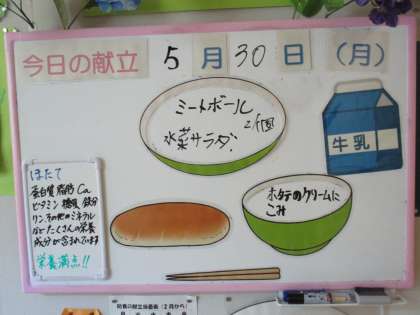 今日の献立 5月30日(月)
ミートボール
2個
水菜サラダ
牛乳
ホタテのクリームに
こみ
ほたて
蛋白質 脂肪 Ca
ビタミン 糖質 鉄分
リン、その他のミネラル
など たくさんの栄養
成分が含まれています
栄養満点!!
給食の献立当番表(2月から)